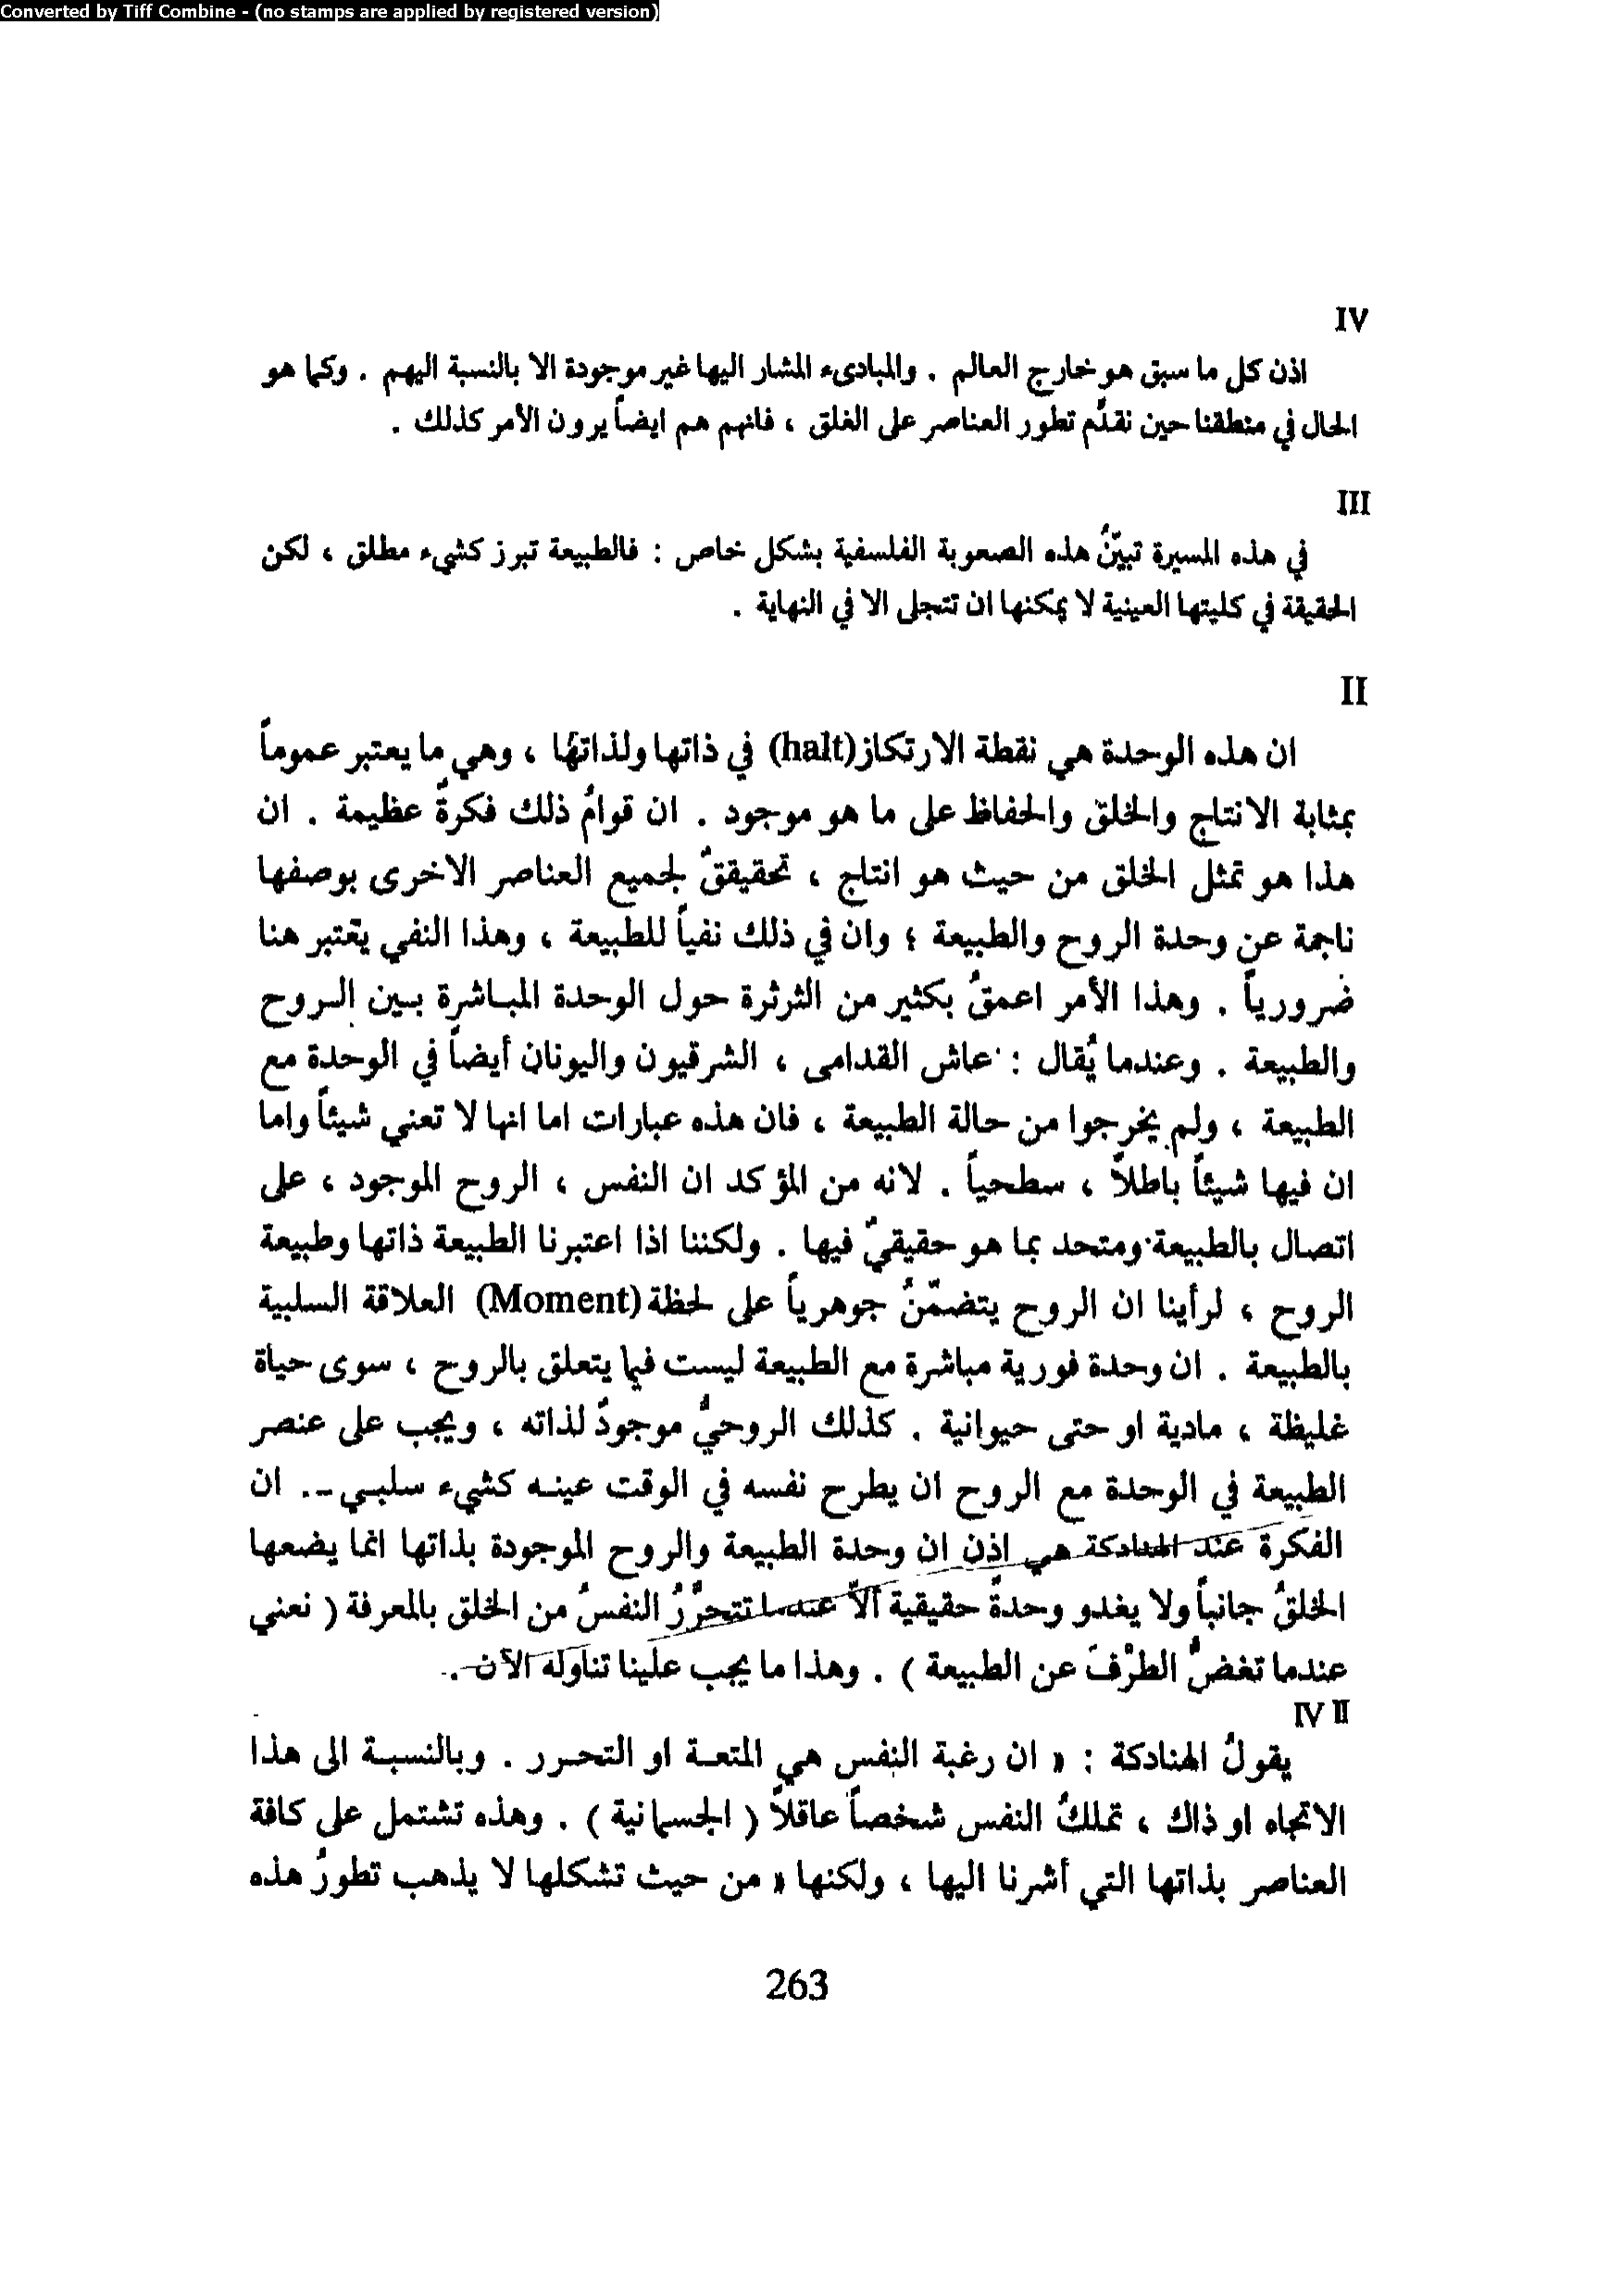 Converted by Tiff Combine - (no stamps are applied by registered version)
IV
اذن كل ما سبق هو خارج العالم . والمبادىء المشار اليها غير موجودة الا بالنسبة اليهم . وكما هو
الحال في منطقنا حين نقدَّم تطور العناصر على الخلق ، فانهم هم ايضاً يرون الأمر كذلك .
III
في هذه المسيرة تبيّنُ هذه الصعوبة الفلسفية بشكل خاص : فالطبيعة تبرز كشيء مطلق ، لكن
الحقيقة في كليتها العينية لا يمكنها ان تتجلى الا في النهاية .
II
ان هذه الوحدة هي نقطة الارتكاز (halt) في ذاتها ولذاتها ، وهي ما يعتبر عموماً
بمثابة الانتاج والخلق والحفاظ على ما هو موجود . ان قوامُ ذلك فكرةٌ عظيمة . ان
هذا هو تمثل الخلق من حيث هو انتاج ، تحقيققٌ لجميع العناصر الاخرى بوصفها
ناجمة عن وحدة الروح والطبيعة ؛ وان في ذلك نفياً للطبيعة ، وهذا النفي يعتبر هنا
ضرورياً . وهذا الأمر اعمقُ بكثير من الثرثرة حول الوحدة المباشرة بين الروح
والطبيعة . وعندما يُقال : عاش القدامى ، الشرقيون واليونان أيضاً في الوحدة مع
الطبيعة ، ولم يخرجوا من حالة الطبيعة ، فان هذه عبارات اما انها لا تعني شيئاً واما
ان فيها شيئاً باطلاً ، سطحياً . لانه من المؤكد ان النفس ، الروح الموجود ، على
اتصال بالطبيعة ومتحد بما هو حقيقيٌ فيها . ولكننا اذا اعتبرنا الطبيعة ذاتها وطبيعة
الروح ، لرأينا ان الروح يتضمّنُ جوهرياً على لحظة (Moment) العلاقة السلبية
بالطبيعة . ان وحدة فورية مباشرة مع الطبيعة ليست فيما يتعلق بالروح ، سوى حياة
غليظة ، مادية او حتى حيوانية . كذلك الروحيُّ موجودٌ لذاته ، ويجب على عنصر
الطبيعة في الوحدة مع الروح ان يطرح نفسه في الوقت عينه كشيء سلبي -. ان
الفكرة عند الهنادكة هي اذن ان وحدة الطبيعة والروح الموجودة بذاتها انما يضعها
الخلقُ جانباً ولا يغدو وحدةً حقيقية الاّ عندما تتحرَّرُ النفسُ من الخلق بالمعرفة ( نعني
عندما تغضُّ الطرْفَ عن الطبيعة ) . وهذا ما يجب علينا تناوله الآن .
IV II
يقولُ الهنادكة : « ان رغبة النفس هي المتعة او التحرر . وبالنسبة الى هذا
الاتجاه او ذاك ، تملكُ النفس شخصاً عاقلاً ( الجسمانية ) . وهذه تشتمل على كافة
العناصر بذاتها التي أشرنا اليها ، ولكنها « من حيث تشكلها لا يذهب تطورُ هذه
263